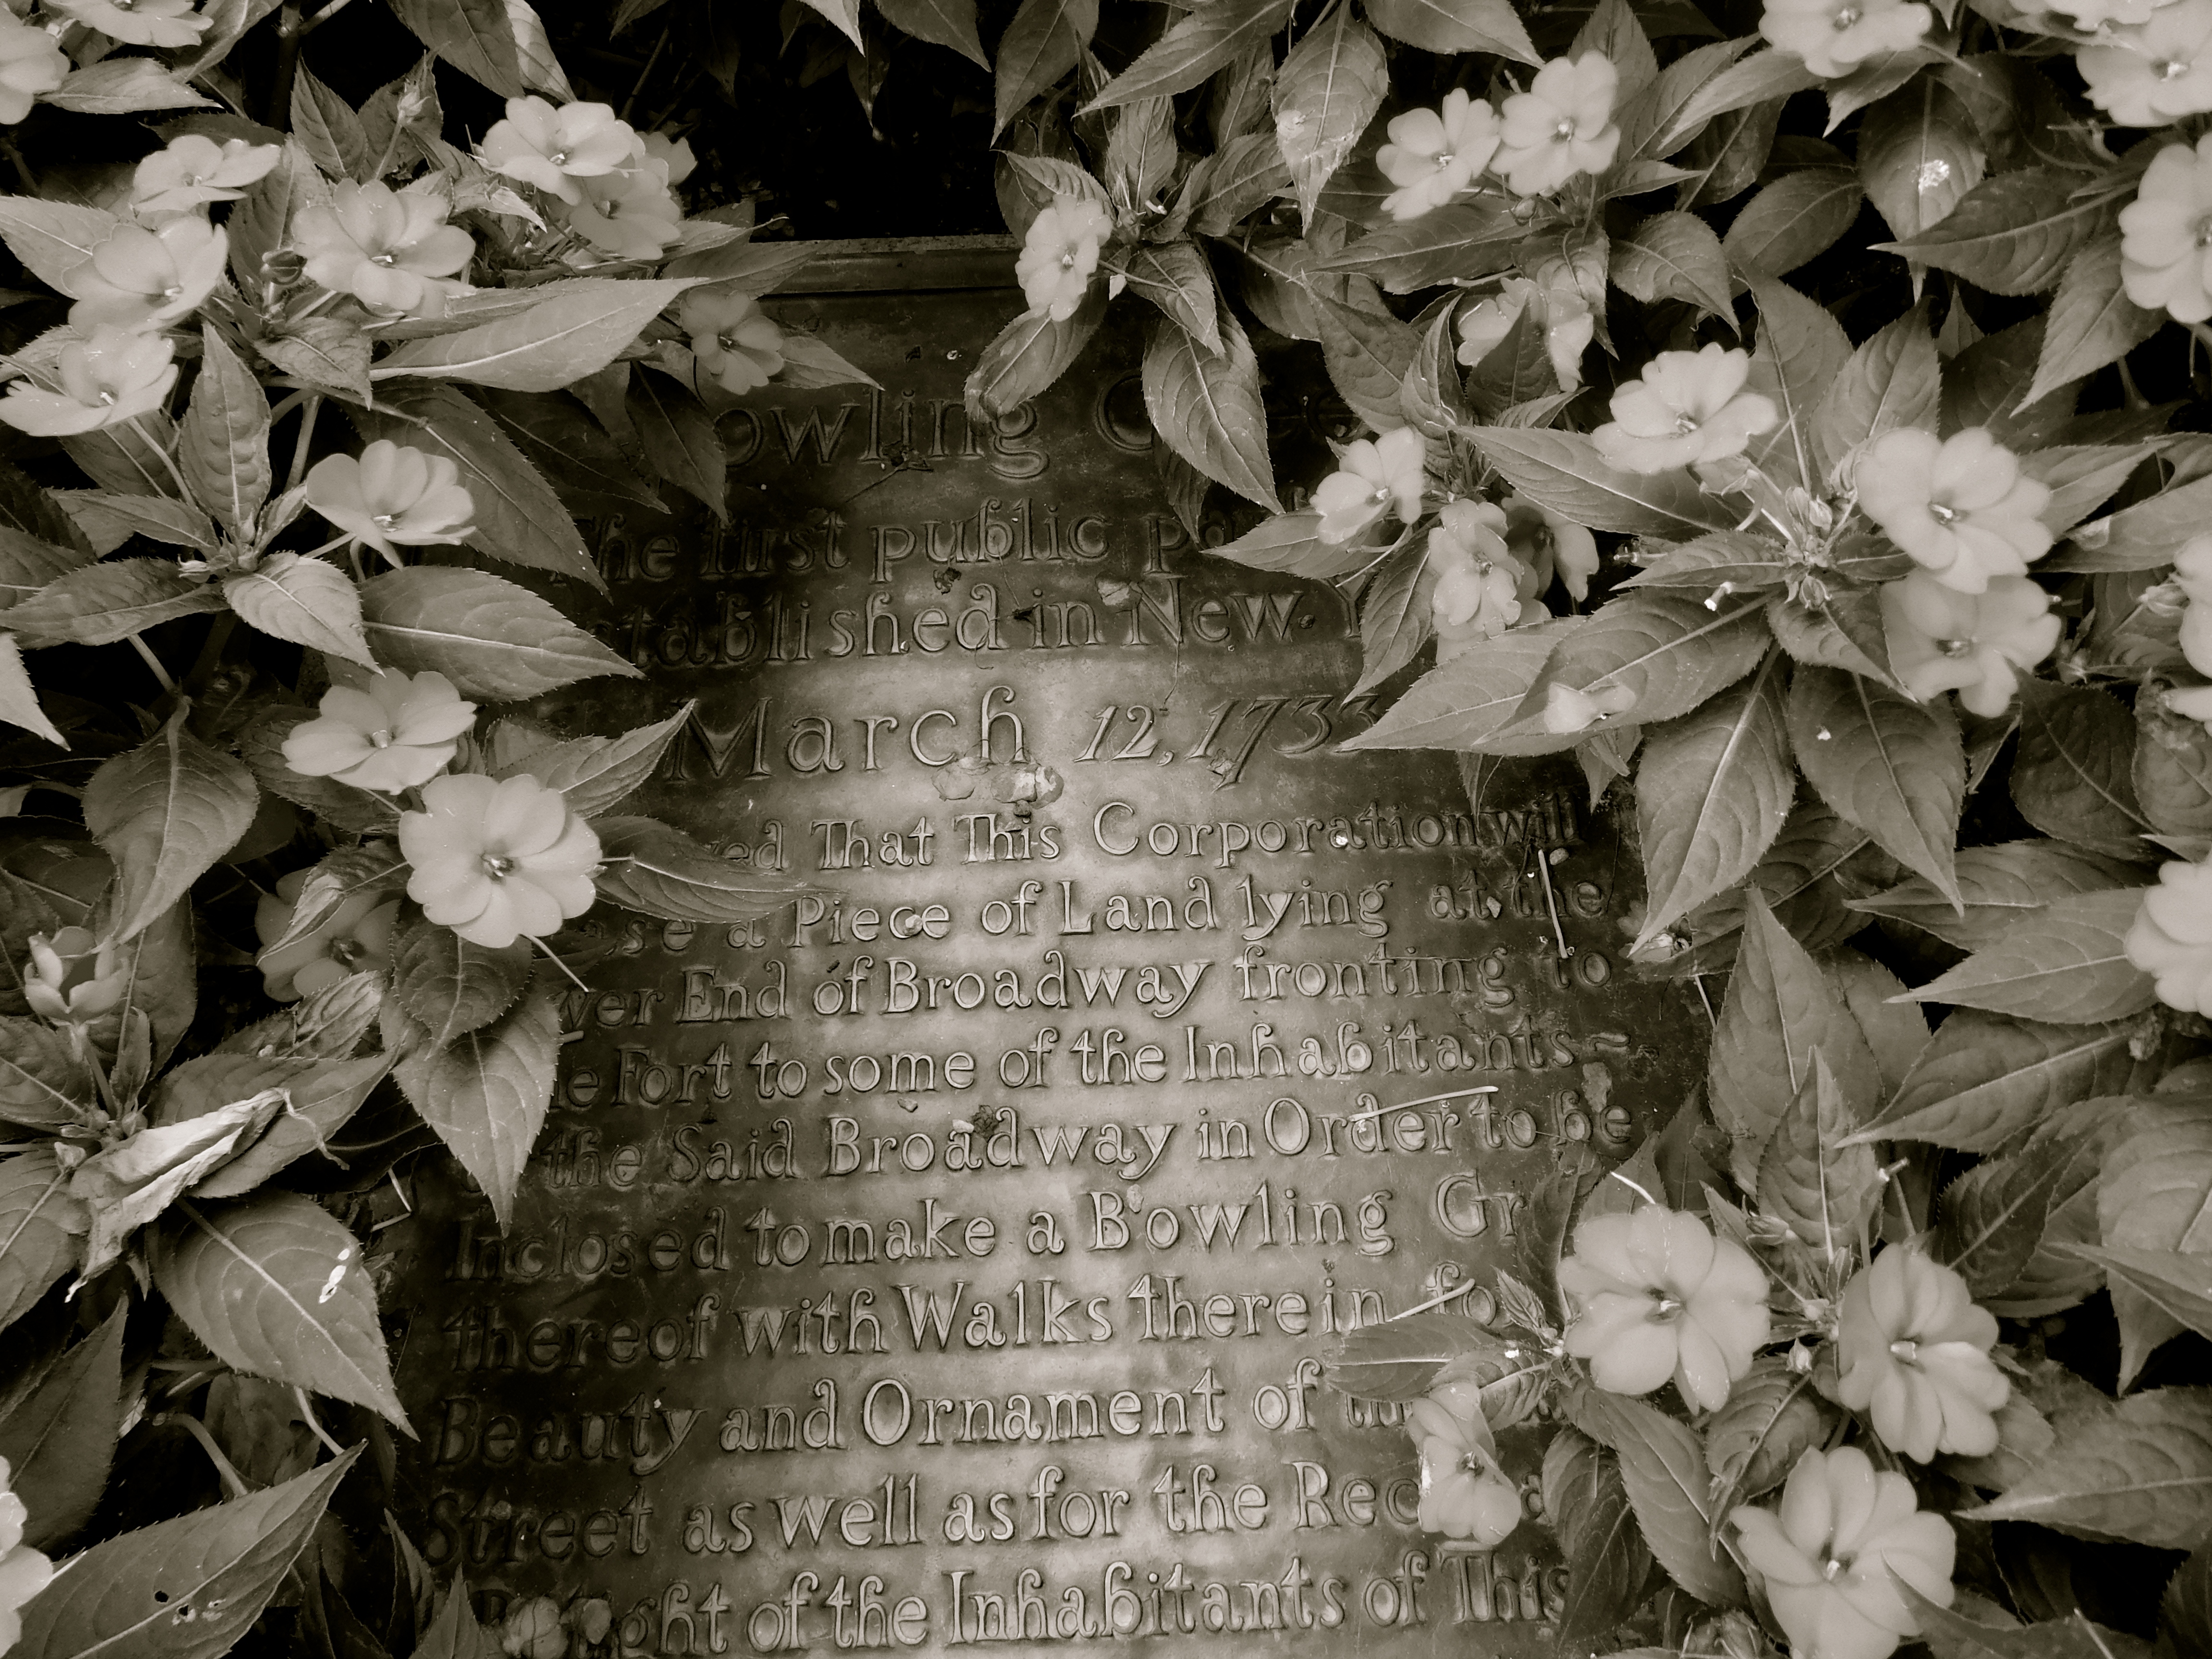 Bowling Green
The first public park
established in New York
March 12, 1733
Resolved That This Corporation will
Lease a Piece of Land lying at the
Lower End of Broadway fronting to
the Fort to some of the Inhabitants
of the Said Broadway in Order to be
Inclosed to make a Bowling Green
thereof with Walks therein for the
Beauty and Ornament of the Said
Street as well as for the Recreation
Delight of the Inhabitants of This